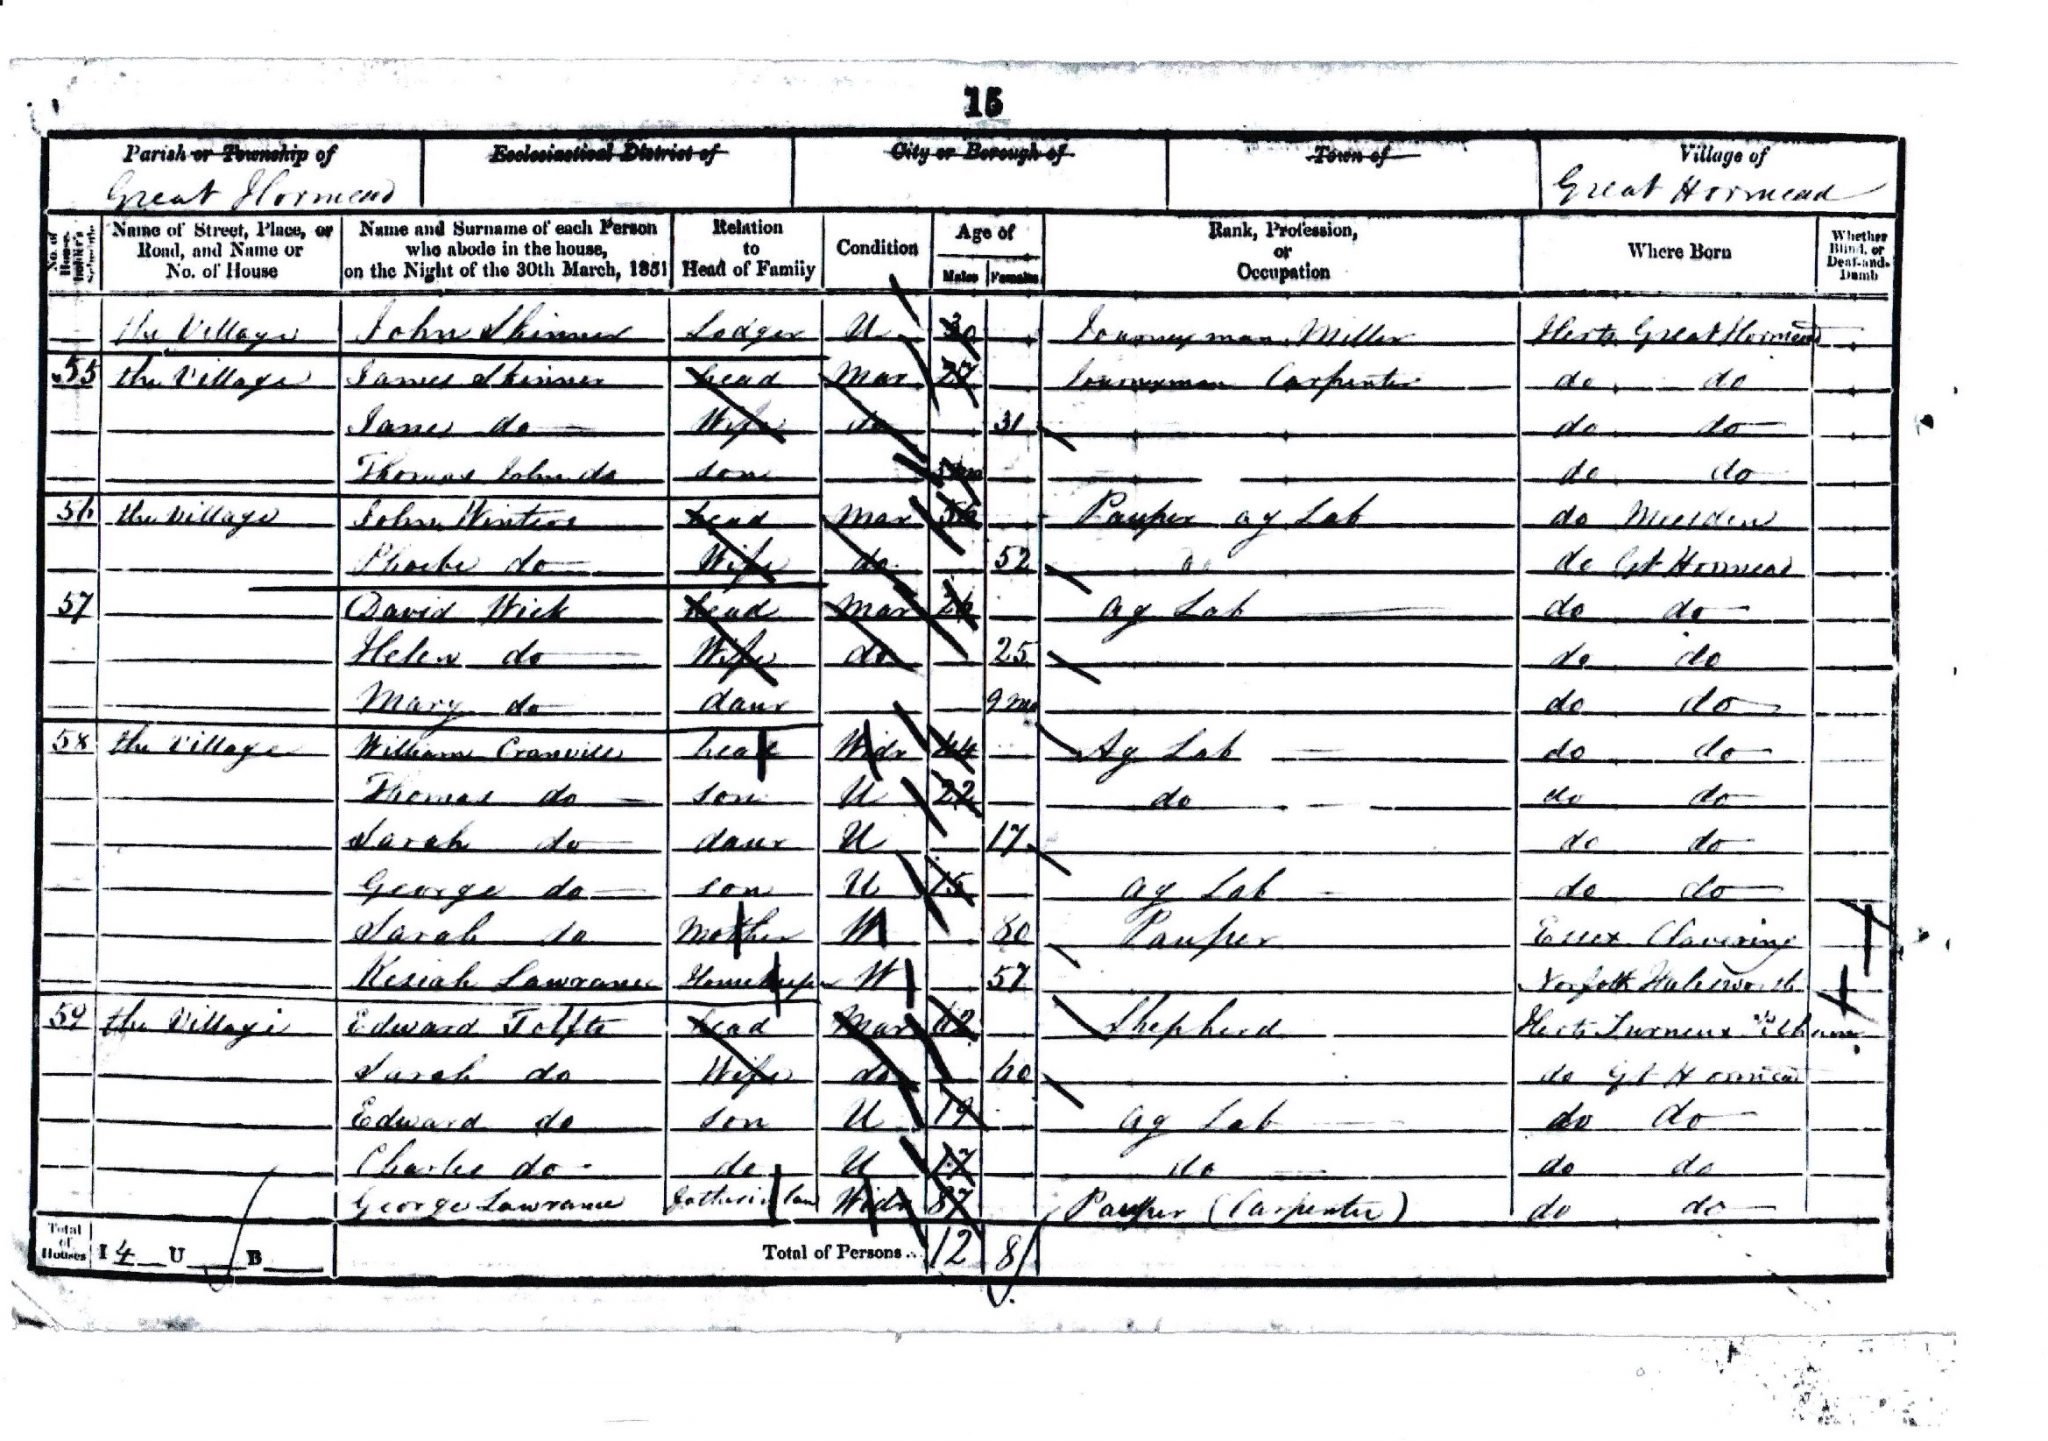 15
Parish or Township of Ecclesiastical District of City or Borough of Town of Village of
Great Hormead Great Hormead
No. of House-holder's Schedule Name of Street, Place, or Road, and Name or No. of House Name and Surname of each Person who abode in the house, on the Night of the 30th March, 1851 Relation to Head of Family Condition Age of Males Females Rank, Profession, or Occupation Where Born Whether Blind, or Deaf-and-Dumb
the Village John Skinner Lodger U 30 Journeyman Miller Herts Great Hormead
55 the Village James Skinner head Mar 27 Journeyman Carpenter do do
Jane do Wife do 31 do do
Thomas John do son do do
56 the Village John Winters head Mar Pauper ag Lab do Meesden
Phoebe do Wife do 52 do do Gt Hormead
57 David Wick head Mar 26 ag Lab do do
Helen do Wife do 25 do do
Mary do daur 9 mo do do
58 the Village William Cranwill head Widr 44 Ag Lab do do
Thomas do son U 22 do do do
Sarah do daur U 17 do do
George do son U 15 ag Lab do do
Sarah do Mother W 80 Pauper Essex Clavering
Kesiah Lawrance Housekeeper W 57 Norfolk
59 the Village Edward Tolfte head Mar 42 Shepherd Herts Furneux Pelham
Sarah do Wife do 40 do Gt Hormead
Edward do son U 19 ag Lab do do
Charles do do U 17 do do do
George Lawrance father in law Widr 87 Pauper (Carpenter) do do
Total of Houses I 4 U B Total of Persons.. 12 8